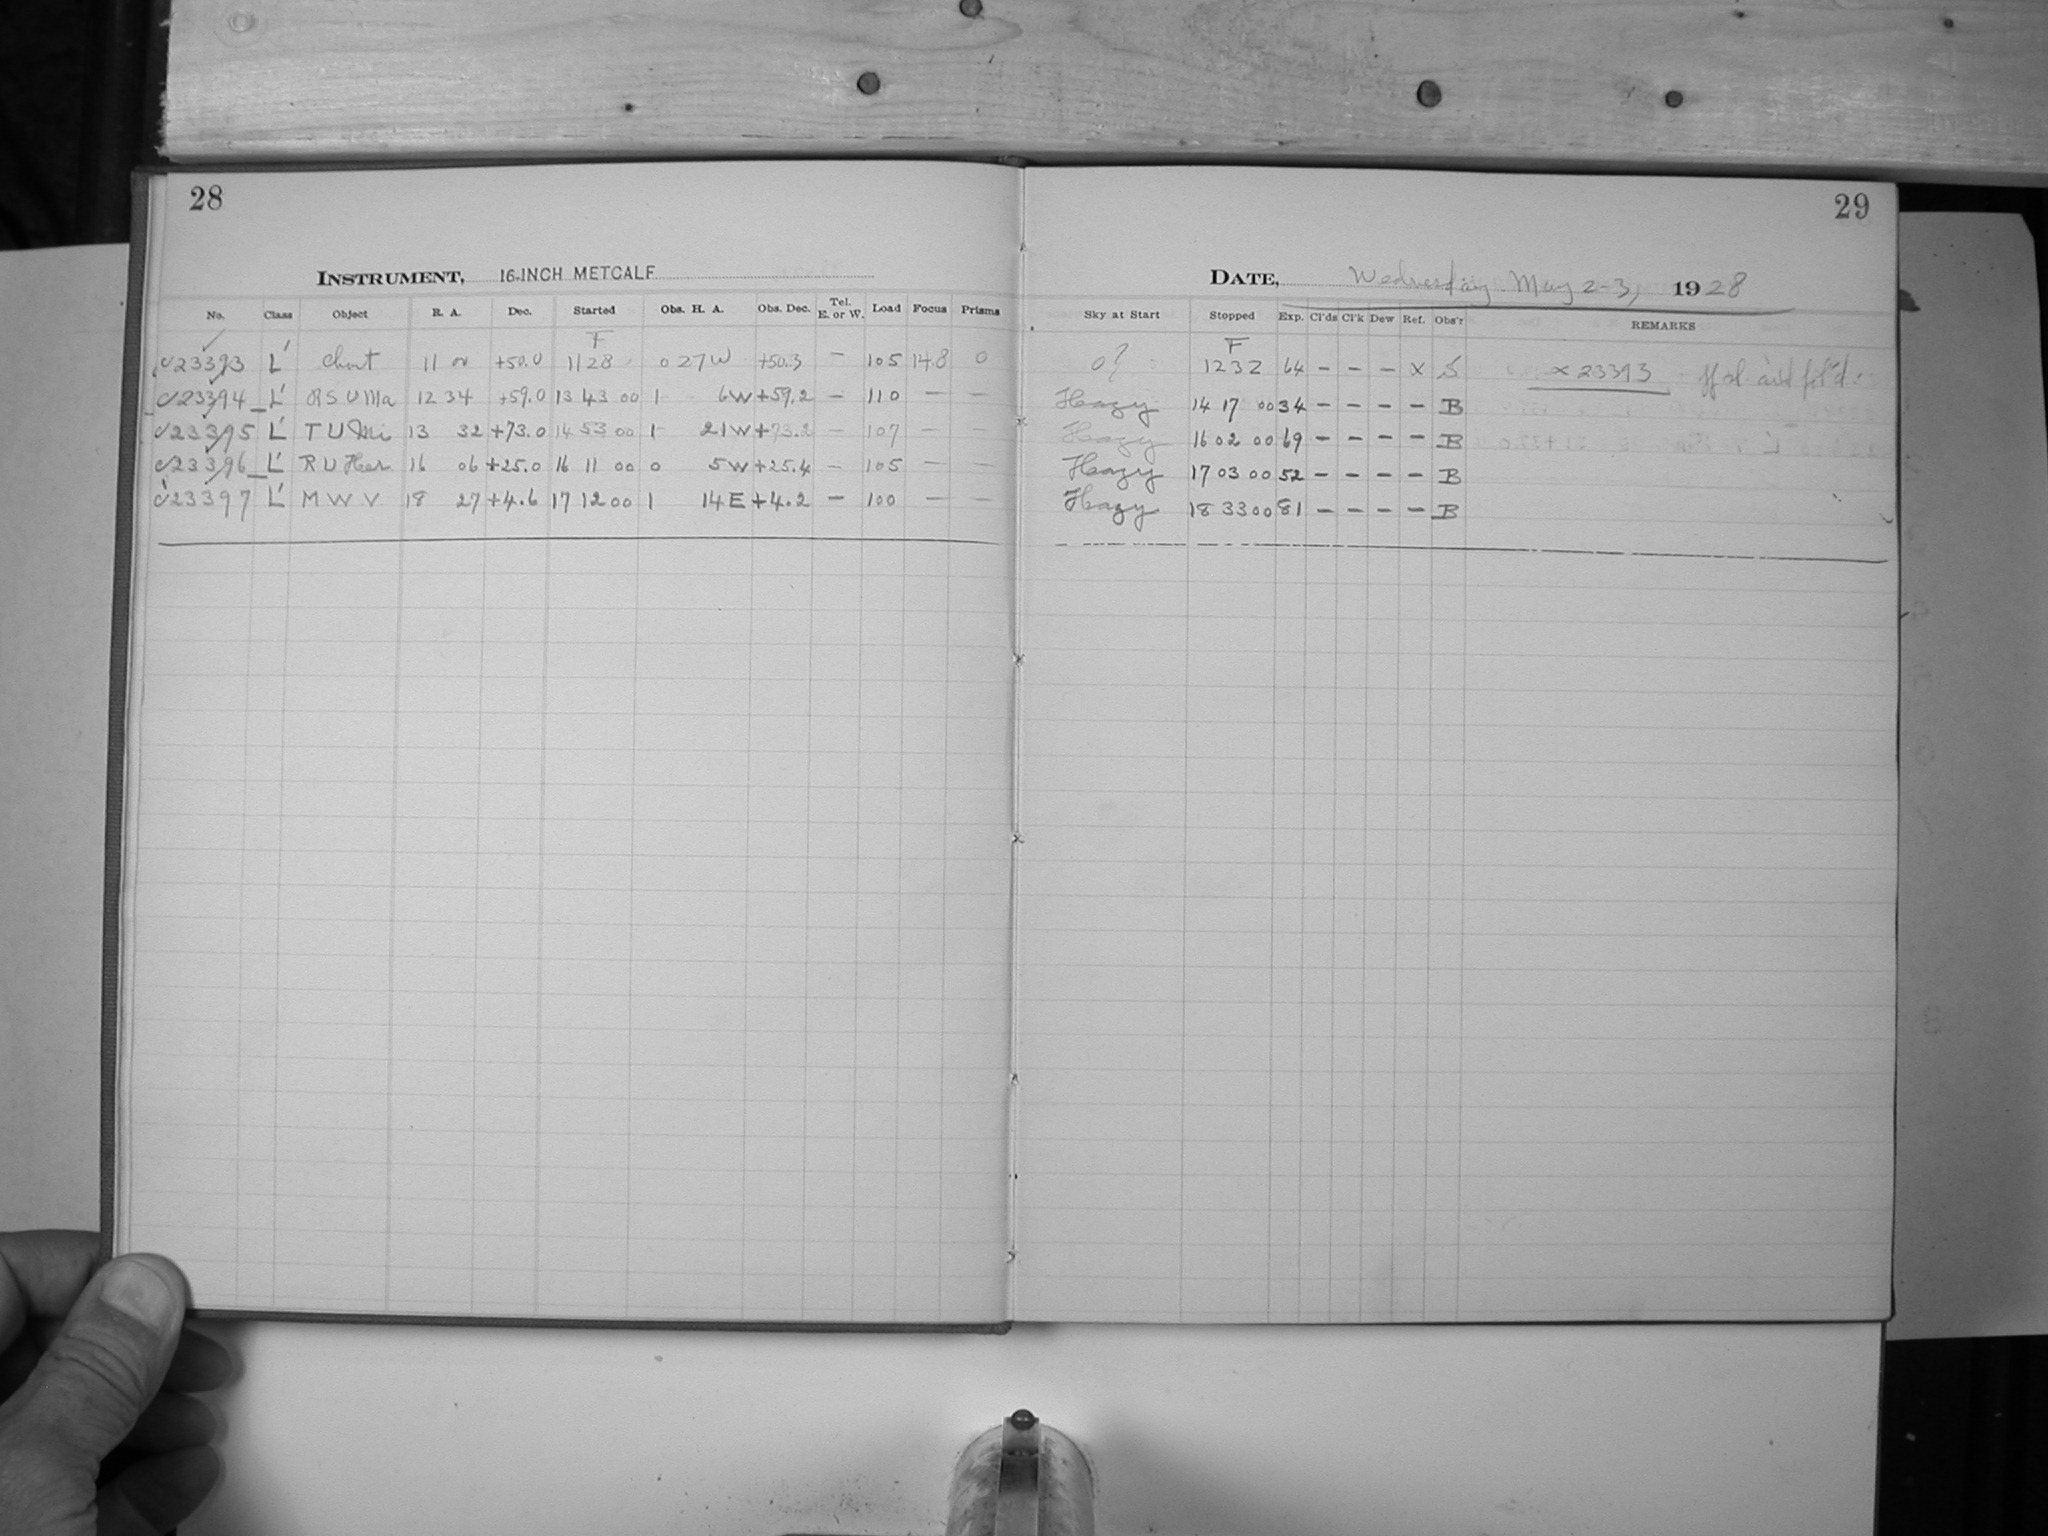 28
INSTRUMENT, 16-INCH METCALF
No. Class Object R. A. Dec. Started Obs. H. A. Obs. Dec. Tel. E. or W. Load Focus Prisms
F
23393 L' Chart 11 00 +50.0 11 28 0 27 W +50.3 — 105 14.8 0
23394 L' R S U Ma 12 34 +59.0 13 43 00 1 6 W +59.2 — 110 — —
23395 L' T U Mi 13 32 +73.0 14 53 00 1 21 W +73.2 — 107 — —
23396 L' R U Her 16 06 +25.0 16 11 00 0 5 W +25.4 — 105 — —
23397 L' M W V. 18 27 +4.6 17 12 00 1 14 E +4.2 — 100 — —
29
DATE, Wednesday May 2-3, 1928
Sky at Start Stopped Exp. Cl'ds Cl'k Dew Ref. Obs'r REMARKS
F
0? 12 32 64 — — — X S x 23393
Hazy 14 17 00 34 — — — — B
Hazy 16 02 00 69 — — — — B
Hazy 17 03 00 52 — — — — B
Hazy 18 33 00 81 — — — — B